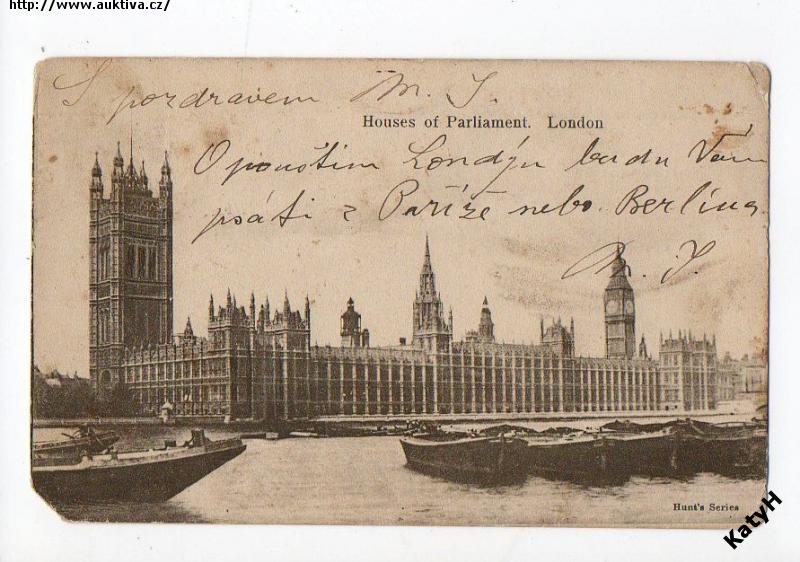 http://www.auktiva.cz/
S pozdravem M. J.
Houses of Parliament. London
Opouštím Londýn budu Vám
psáti z Paříže nebo Berlína
M. J.
Hunt's Series
KatyH